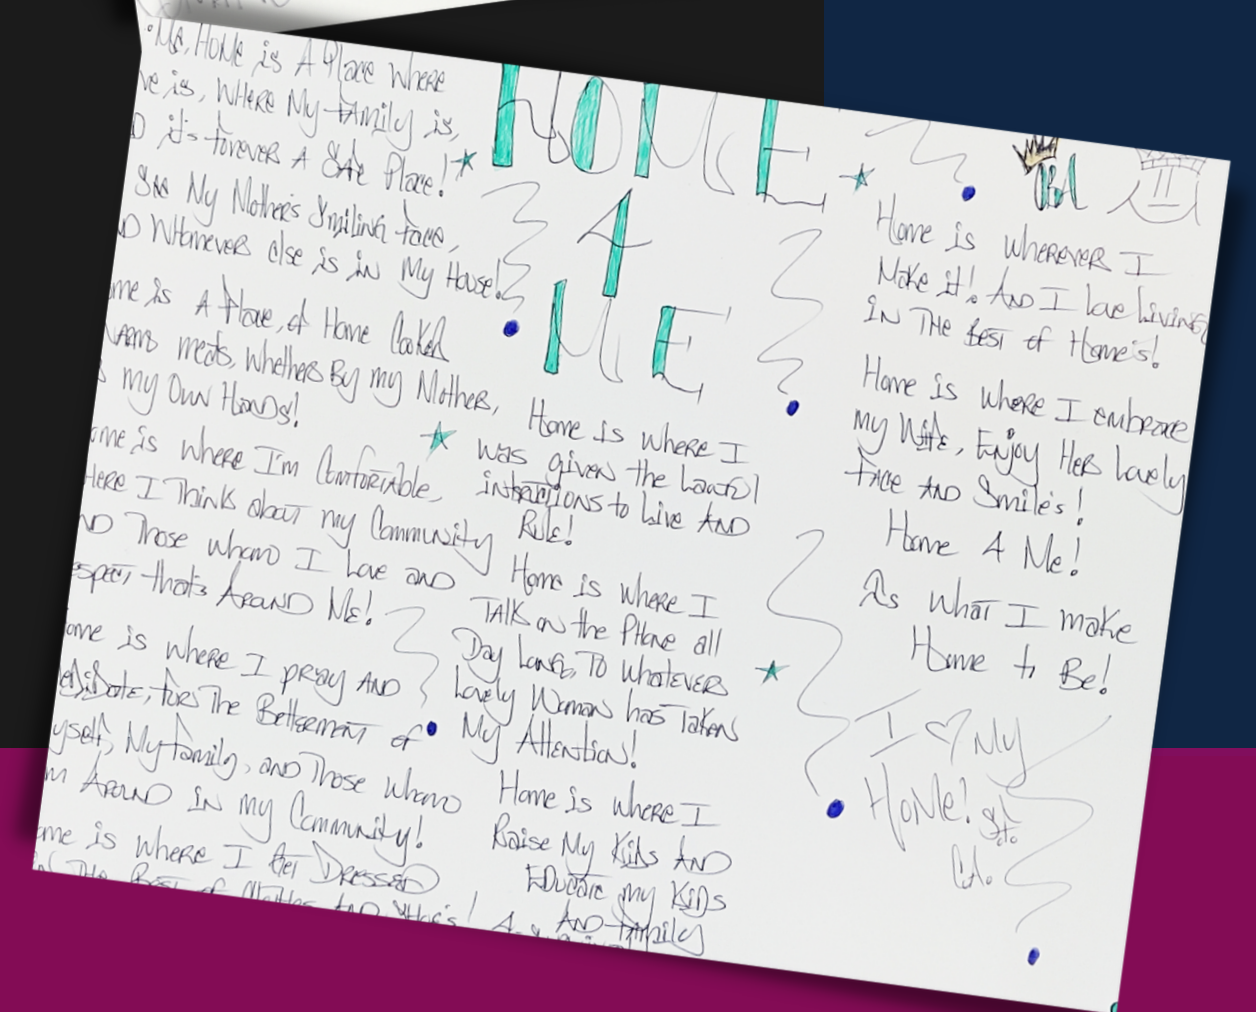 HOME
4
ME
Me, Home is A Place where
ve is, where My family is,
D it's forever A Safe Place!
See My Mothers Smiling face,
D Whomever else is in My House!
me is A Place, of Home Cooked
meats, whethers By my Mother,
my Own Hands!
ome is where I'm Comfortable,
here I Think about my Community
ND Those whom I Love and
espect that's Around Me!
ome is where I pray AND
for The Betterment of
yself, My family, and Those whom
m Around in my Community!
ome is where I Get Dressed
in The Best of Clothes AND Shoe's!
Home is where I
was given the Lawful
instructions to Live AND
Rule!
Home is where I
Talk on the Phone all
Day Long, To Whatevers
Lovely Woman has Taken
My Attention!
Home is where I
Raise My Kids AND
Educate my Kids
AND family
OBA
Home is wherever I
Make it! AND I love Living
IN THE Best of Home's!
Home is where I embrace
my Wife, Enjoy Her Lovely
Face AND Smile's!
Home 4 Me!
As what I make
Home to Be!
I ♡ My
Home!
Ca.